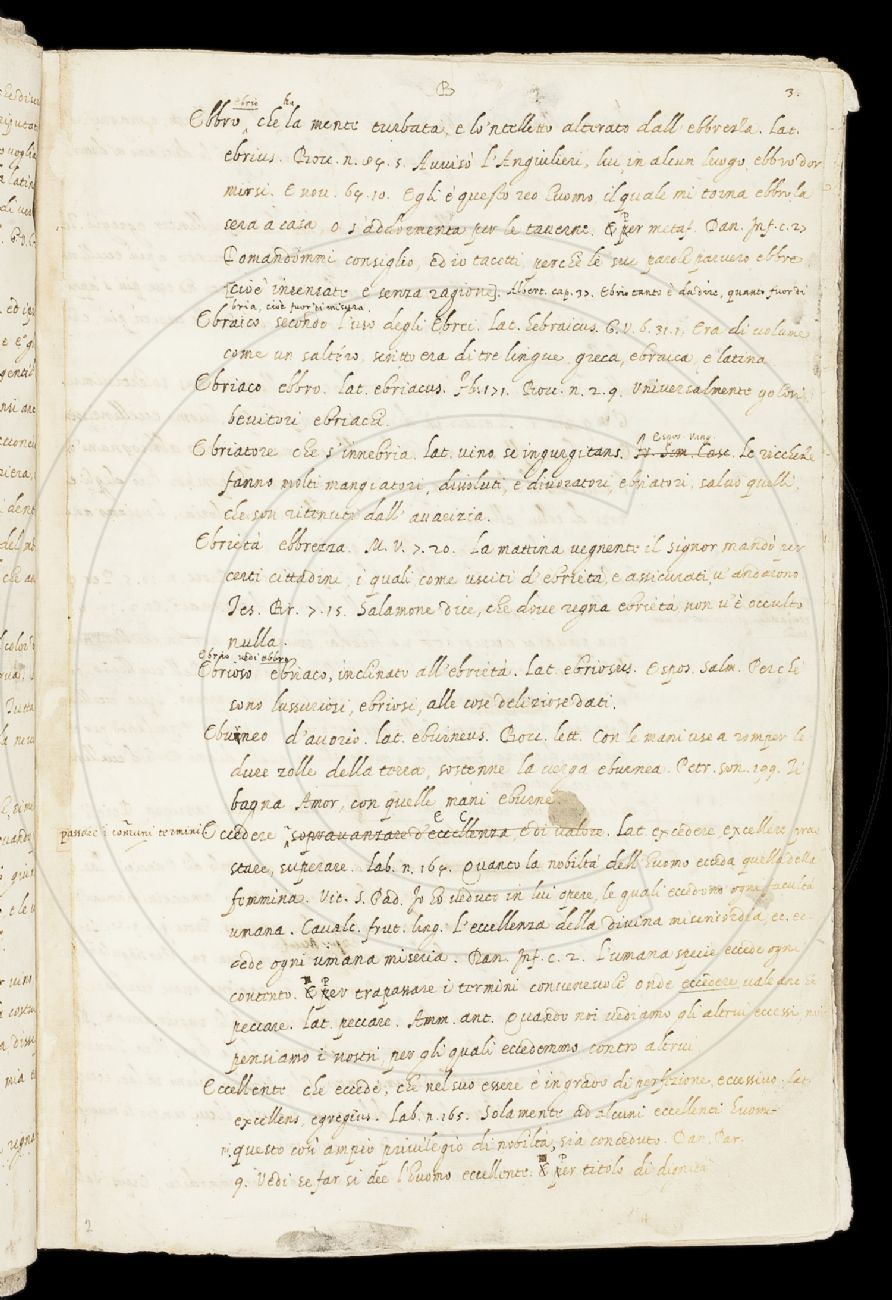 B
3.
ebrio ha
Ebbro, che la mente turbata, e lo 'ntelletto alterato dall' ebbrezza. Lat.
ebrius. Bocc. n. 84. 5. Avvisò l'Angiulieri, lui in alcun luogo ebbro dor
mirsi. E nov. 64. 10. Egli è questo reo huomo, il quale mi torna ebbro la
sera a casa, o s'addormenta per le taverne. per metaf. Dan. Inf. c. 27
Domandommi consiglio, ed io tacetti, perche le sue parole parvero ebbre
[cioè insensate e senza ragione]. Albert. cap. 37. Ebrio tanto è da dire, quanto fuor di
bria, cioè fuor di misura.
Ebraico. secondo l'uso degli Ebrei. Lat. hebraicus. G. V. 6. 31. 1. Era di volume
come un saltéro, scritto era di tre lingue, greca, ebraica, e latina
Ebriaco ebbro. Lat. ebriacus. Bocc. n. 2. 9. Universalmente golosi
bevitori ebriachi.
Espos. Vang.
Ebriatore che s'innebria. Lat. vino se ingurgitans. Le ricchezze
fanno molti mangiatori, dissoluti, e divoratori, ebriatori, salvo quelli,
che son ritenuti dall' avarizia.
Ebrietà ebbrezza. M. V. 7. 20. La mattina vegnente il signor mandò per
certi cittadini, i quali come usciti d'ebrietà, e assicurati, v'andarono
Tes. Br. 7. 15. Salamone dice, che dove regna ebrietà non v'è occulto
nulla.
Ebrio vedi ebbro
Ebrioso ebriaco, inclinato all'ebrietà. Lat. ebriosus. Espos. Salm. Perchè
sono lussuriosi, ebriosi, alle cose deliziose dati.
Eburneo d'avorio. Lat. eburneus. Bocc. lett. Con le mani use a romper le
dure zolle della terra, sostenne la verga eburnea. Petr. son. 199. Di
bagna Amor, con quelle mani eburne
passare i comuni termini Eccedere sopravanzare d'eccellenza, e di valore. Lat. excedere, excellere prae
stare, superare. Lab. n. 164. Quanto la nobiltà dell'huomo ecceda quella della
femmina. Vit. S. Pad. Io ho veduto in lui opere, le quali eccedono ogni facultà
umana. Cavalc. frut. ling. L'eccellenza della divina misericordia, ec. ec-
cede ogni umana miseria. Dan. Inf. c. 2. L'umana specie eccede ogni
contento. per trapassare i termini convenevoli onde eccedere vale anche
peccare. Lat. peccare. Amm. ant. Quando noi vediamo gli altrui eccessi, noi
pensiamo i nostri, per gli quali eccedemmo contro altrui
Eccellente che eccede, che nel suo essere è in grado di perfezione, eccessivo. Lat.
excellens, egregius. Lab. n. 165. Solamente ad alcuni eccellenti huomi-
ni questo così ampio privilegio di nobiltà, sia conceduto. Dan. Par.
9. Vedi se far si dee l'huomo eccellente. per titolo di dignità
2